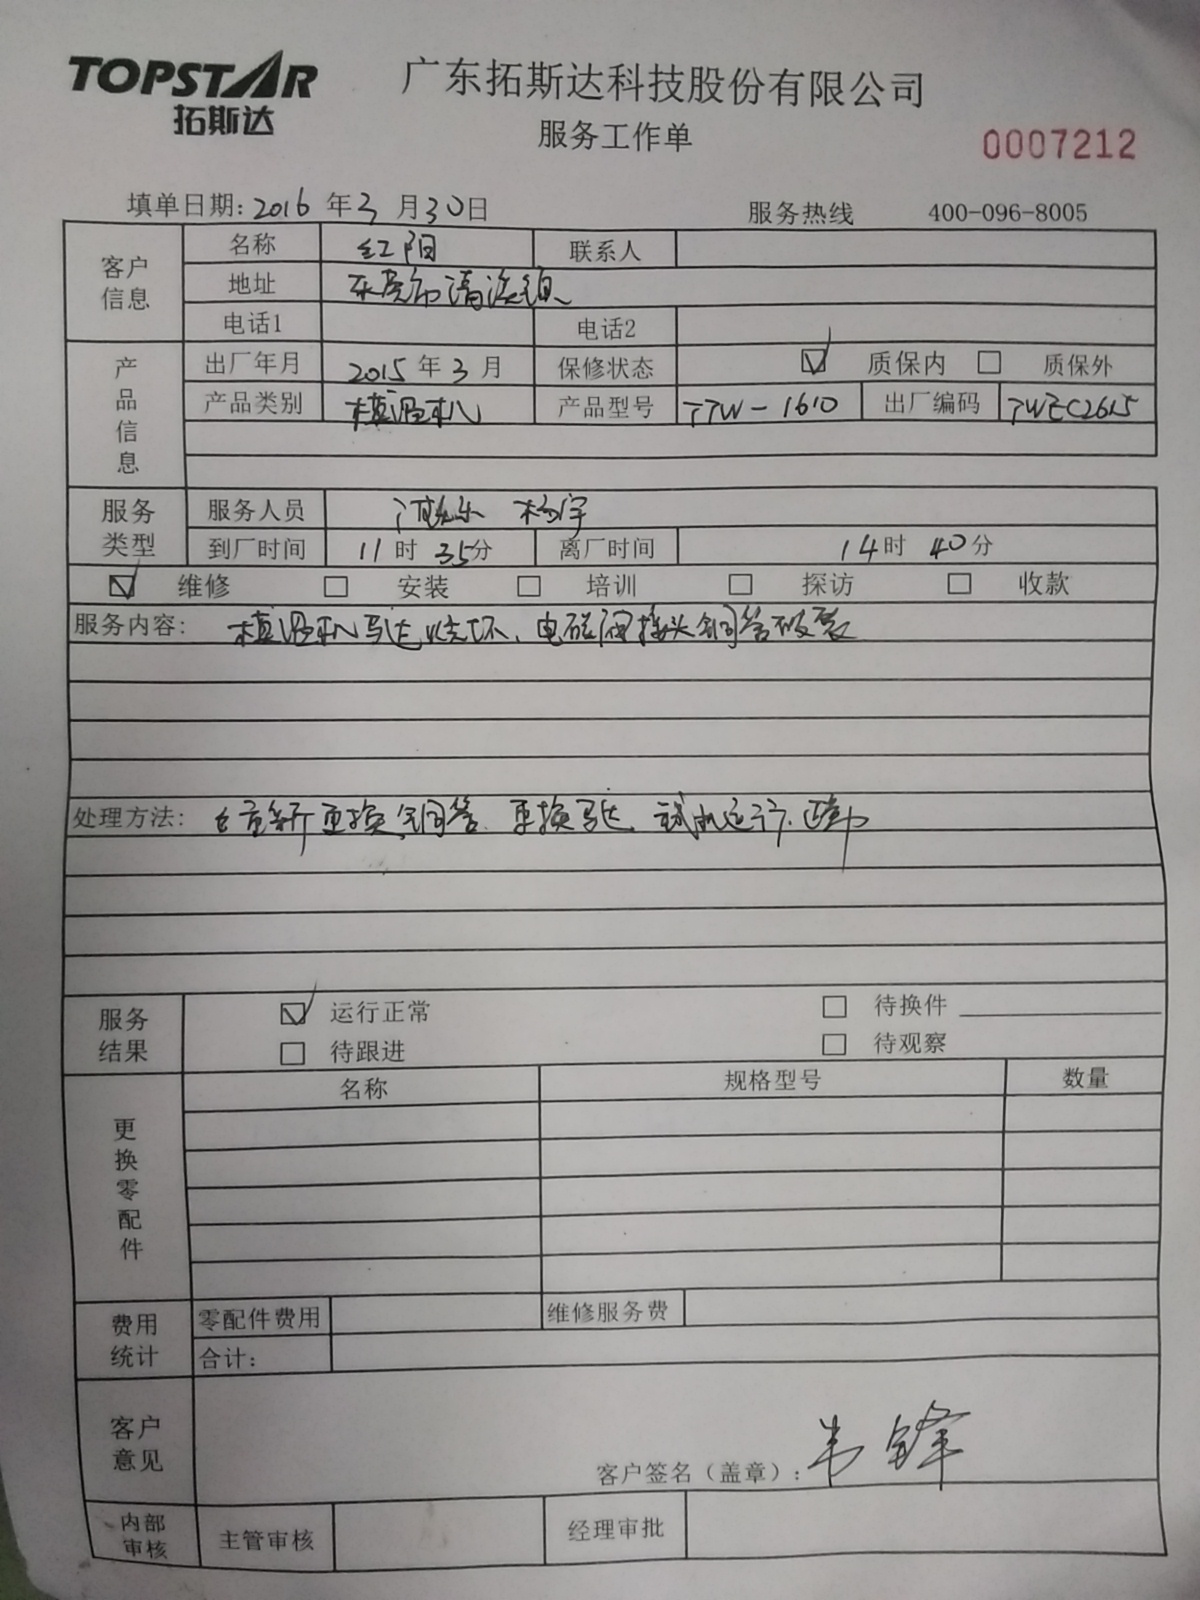 TOPSTAR
拓斯达
广东拓斯达科技股份有限公司
服务工作单
0007212
填单日期: 2016 年 3 月 30 日
服务热线 400-096-8005
客户信息
名称 红阳 联系人
地址 东莞市清溪镇
电话1 电话2
产品信息
出厂年月 2015 年 3 月 保修状态 ☑ 质保内 □ 质保外
产品类别 模温机 产品型号 TTW-1610 出厂编码
服务类型
服务人员 杨宇
到厂时间 11 时 35 分 离厂时间 14 时 40 分
☑ 维修 □ 安装 □ 培训 □ 探访 □ 收款
服务内容: 模温机马达烧坏、电磁阀接头铜管破裂
处理方法: 重新更换铜管、更换马达、试机运行
服务结果
☑ 运行正常 □ 待换件
□ 待跟进 □ 待观察
更换零配件
名称 规格型号 数量
费用统计
零配件费用 维修服务费
合计:
客户意见
客户签名（盖章）: 韦锋
内部审核 主管审核 经理审批